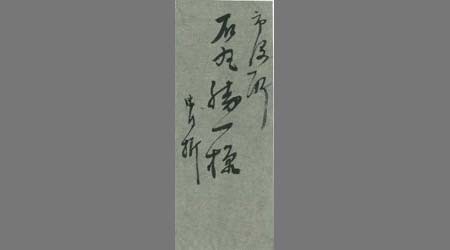 市役所
石丸勝一様